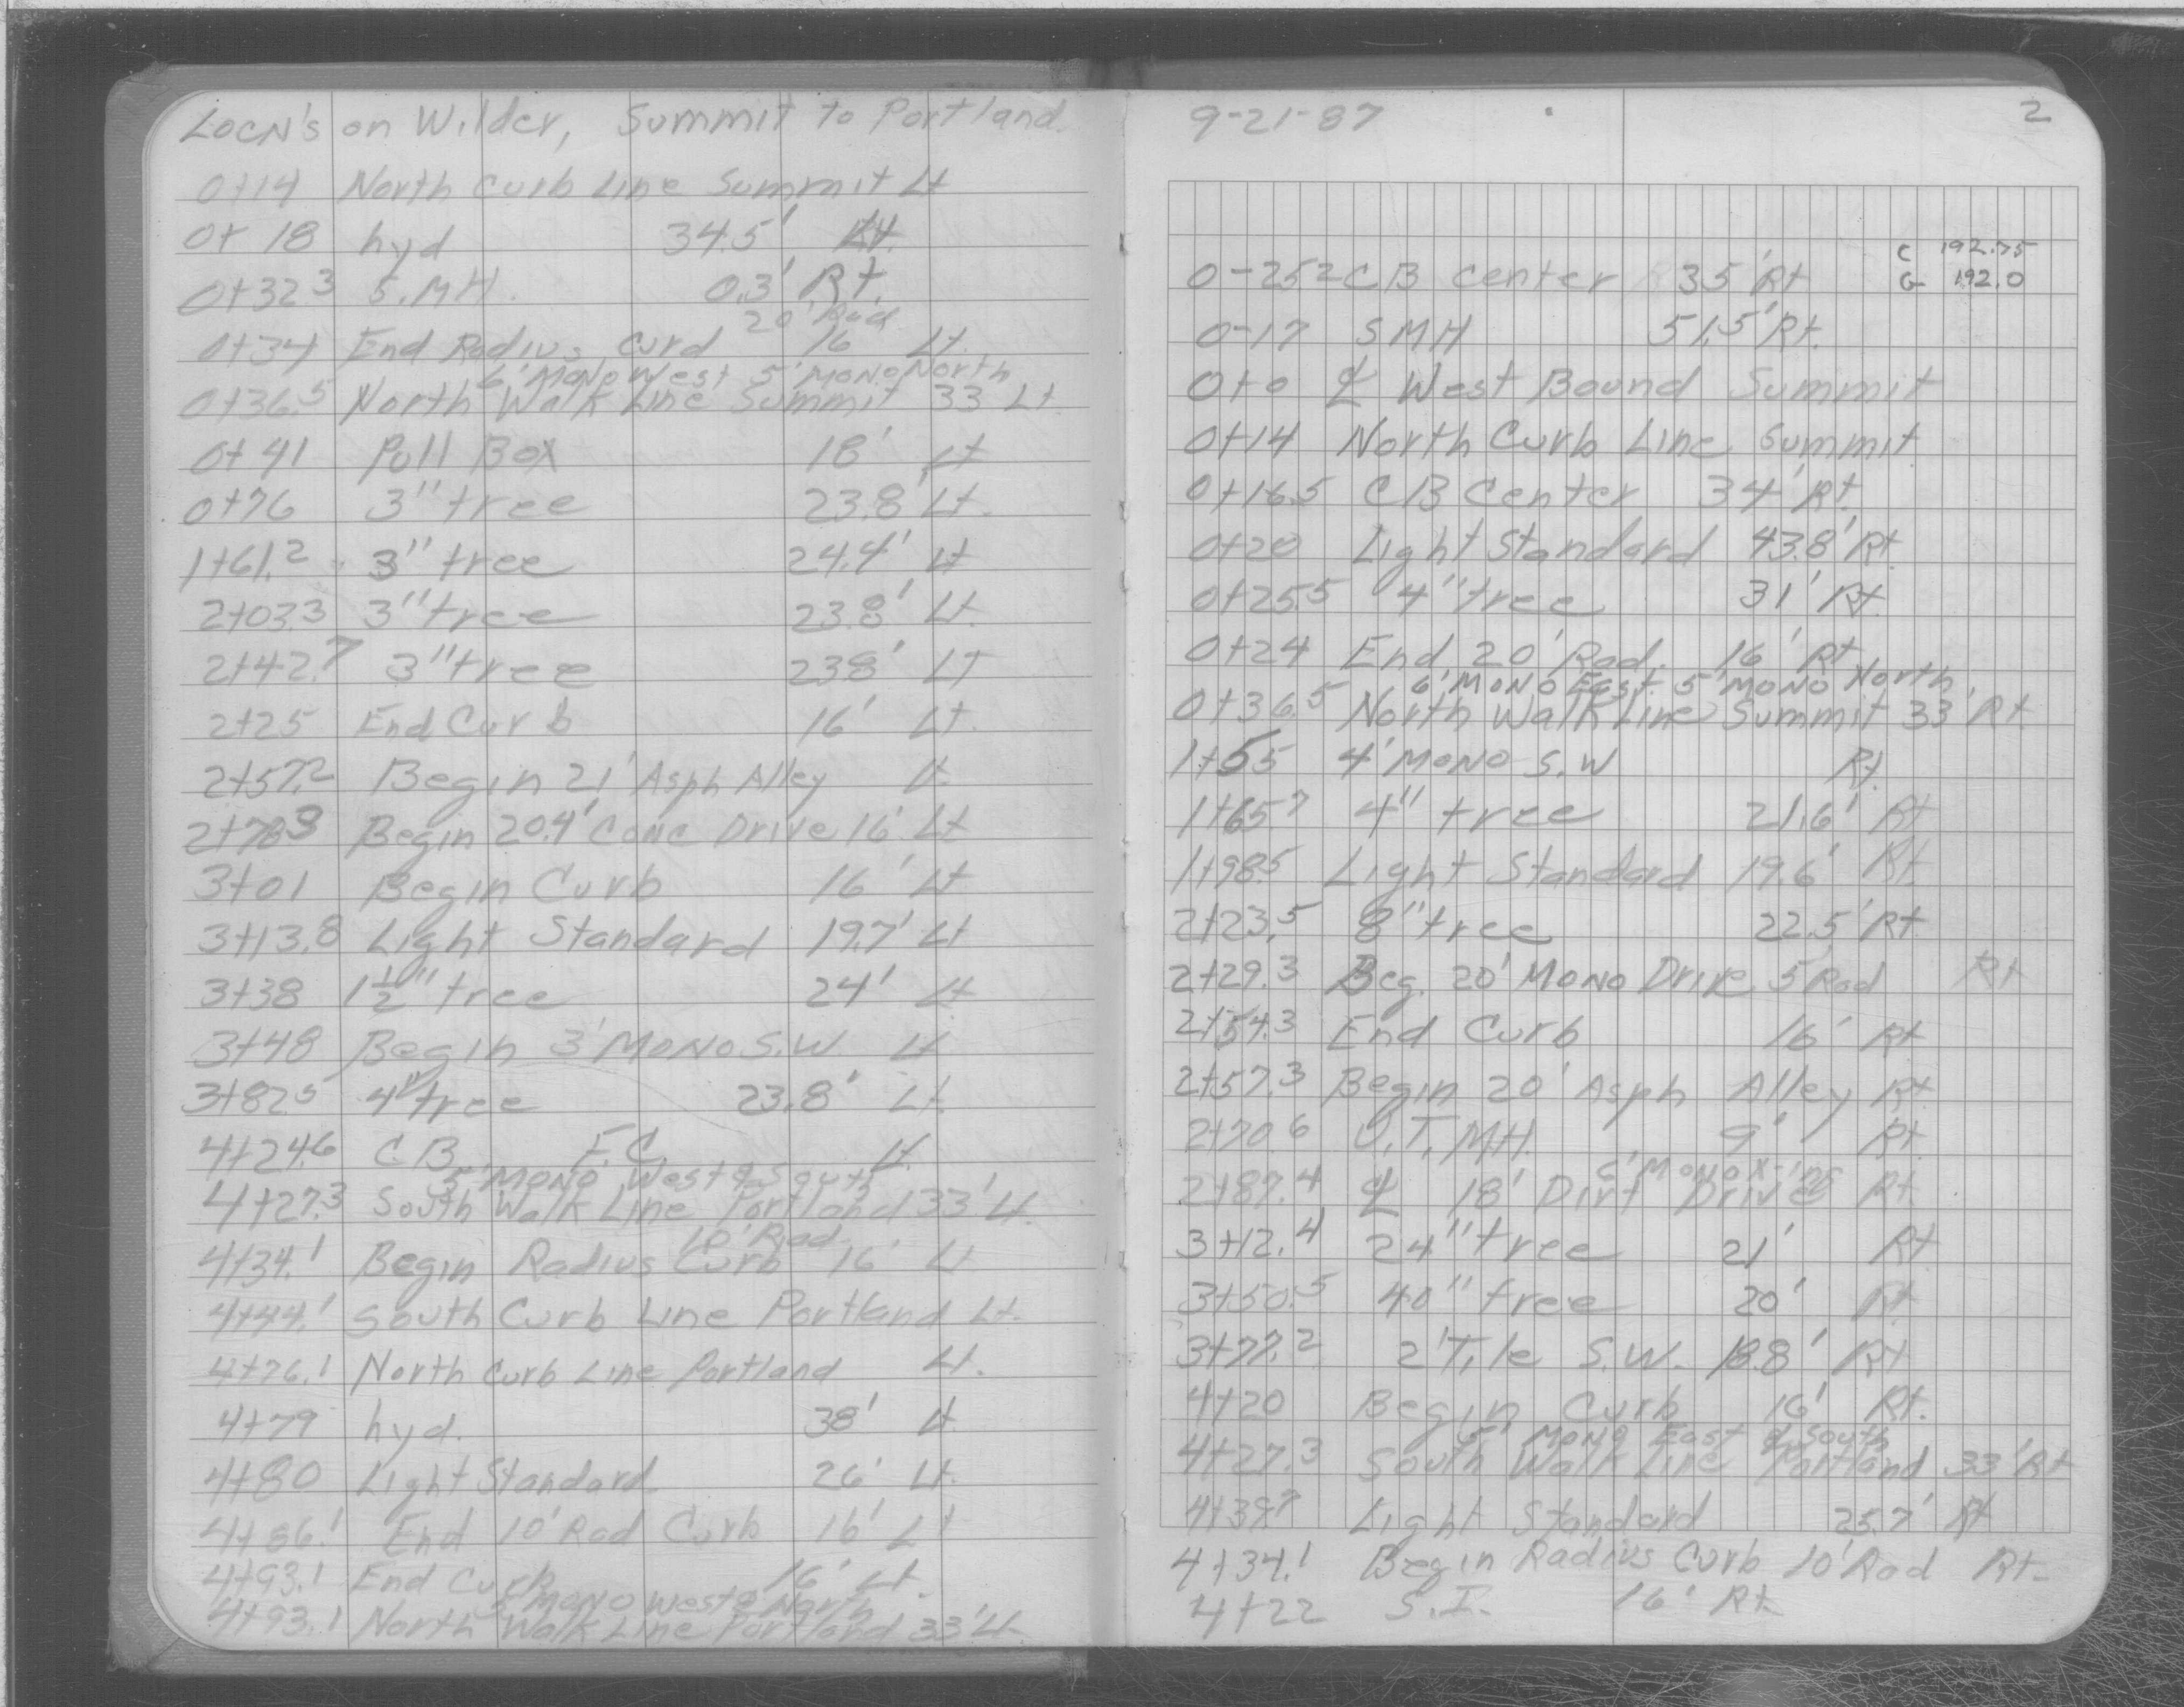 LOCN's on Wilder, Summit to Portland.
0+14 North Curb Line Summit Lt
0+18 hyd 34.5' Lt.
0+32.3 S.MH. 0.3' Rt.
20' Rad
0+34 End Radius Curb 16' Lt.
6' MONO West 5' MONO North
0+36.5 North Walk Line Summit 33 Lt.
0+41 Pull Box 18' Lt
0+76 3" tree 23.8' Lt.
1+61.2 3" tree 24.4' Lt
2+03.3 3" tree 23.8' Lt.
2+42.7 3" tree 23.8' LT
2+25 End Curb 16' Lt.
2+57.2 Begin 21' Asph Alley Lt.
2+78.3 Begin 20.4' Conc Drive 16' Lt
3+01 Begin Curb 16' Lt
3+13.8 Light Standard 19.7' Lt
3+38 1½" tree 24' Lt
3+48 Begin 3' MONO S.W. Lt
3+82.5 4" tree 23.8' Lt.
4+24.6 C.B. F.C. Lt.
5' MONO West & South
4+27.3 South Walk Line Portland 33' Lt.
10' Rad.
4+34.1 Begin Radius Curb 16' Lt
4+44.1 South Curb Line Portland Lt.
4+76.1 North Curb Line Portland Lt.
4+79 hyd. 38' Lt.
4+80 Light Standard 26' Lt.
4+86.1 End 10' Rad Curb 16' Lt
4+93.1 End Curb 16' Lt.
5' MONO West & North
4+93.1 North Walk Line Portland 33' Lt.
9-21-87 2
C 192.75
0-25.2 CB Center 35' Rt G 192.0
0-17 SMH 51.5' Rt.
0+0 ℄ West Bound Summit
0+14 North Curb Line Summit
0+16.5 CB Center 34' Rt.
0+20 Light Standard 43.8' Rt
0+25.5 4" tree 31' Rt.
0+24 End 20' Rad. 16' Rt
6' MONO East 5' MONO North
0+36.5 North Walk Line Summit 33' Rt.
1+55 4' MONO S.W Rt.
1+65.7 4" tree 21.6' Rt
1+98.5 Light Standard 19.6' Rt.
2+23.5 8" tree 22.5' Rt
2+29.3 Beg. 20' MONO Drive 5' Rad Rt
2+54.3 End Curb 16' Rt
2+57.3 Begin 20' Asph Alley Rt.
2+70.6 U.T. MH. 9' Rt.
6' MONO X-ing
2+87.4 ℄ 18' Dirt Drive Rt.
3+12.4 24" tree 21' Rt
3+50.5 40" tree 20' Rt
3+77.2 2' Tile S.W. 18.8' Rt
4+20 Begin Curb 16' Rt.
5' MONO East & South
4+27.3 South Walk Line Portland 33' Rt
4+39.7 Light Standard 25.7' Rt
4+34.1 Begin Radius Curb 10' Rad Rt.
4+22 S.I. 16' Rt.